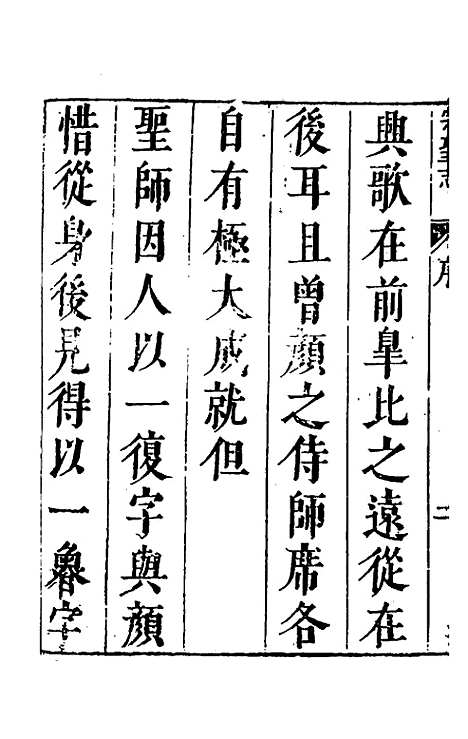 與歌在前皐比之遠從在
後耳且曾顏之侍師席各
自有極大成就但
聖師因人以一復字與顏
惜從身後見得以一魯字
序
二